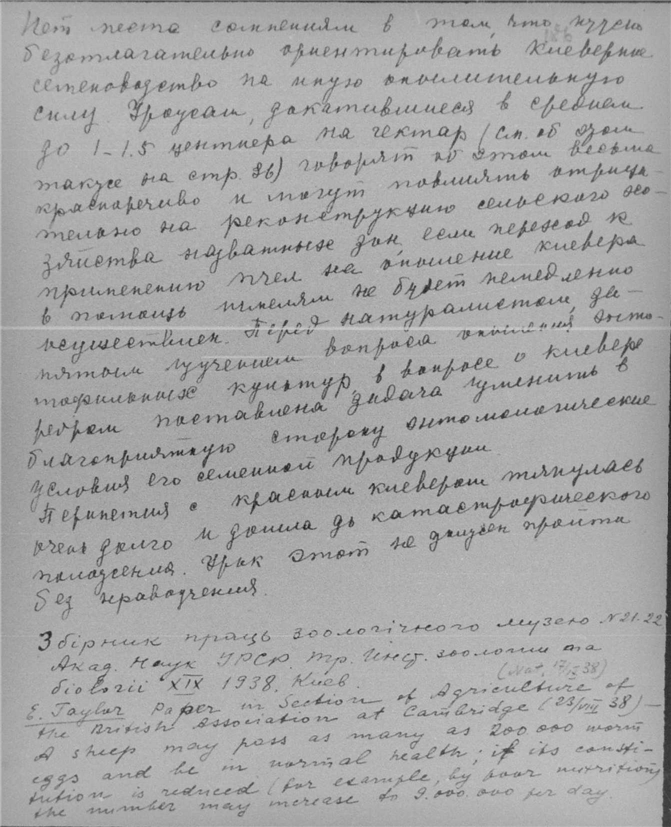 Нет места сомнениям в том, что нужно
безотлагательно ориентировать клеверное
семеноводство на иную опылительную
силу. Урожаи, докатившиеся в среднем
до 1-1.5 центнера на гектар (см. об этом
также на стр. 36) говорят об этом весьма
красноречиво и могут повлиять отрица-
тельно на реконструкцию сельского хо-
зяйства названных зон, если переход к
применению пчел на опыление клевера
в помощь шмелям не будет немедленно
осуществлен. Перед натуралистом, за-
нятым изучением вопроса опыления энто-
мофильных культур, в вопросе о клевере
ребром поставлена задача изменить в
благоприятную сторону энтомологические
условия его семенной продукции.
Перипетия с красным клевером тянулась
очень долго и дошла до катастрофического
положения. Урок этот не должен пройти
без нравоучения.
Збірник праць зоологічного музею N 21-22
Акад. Наук УРСР. Тр. Инст. зоологии та
біології XIX 1938. Киев.
(Nat. 17/IX 38)
E. Taylor Paper in Section of Agriculture of
the British Association at Cambridge (23/VIII 38) —
A sheep may pass as many as 200.000 worm
eggs and be in normal health; if its consti-
tution is reduced (for example, by poor nutrition)
the number may increase to 9.000.000 per day.